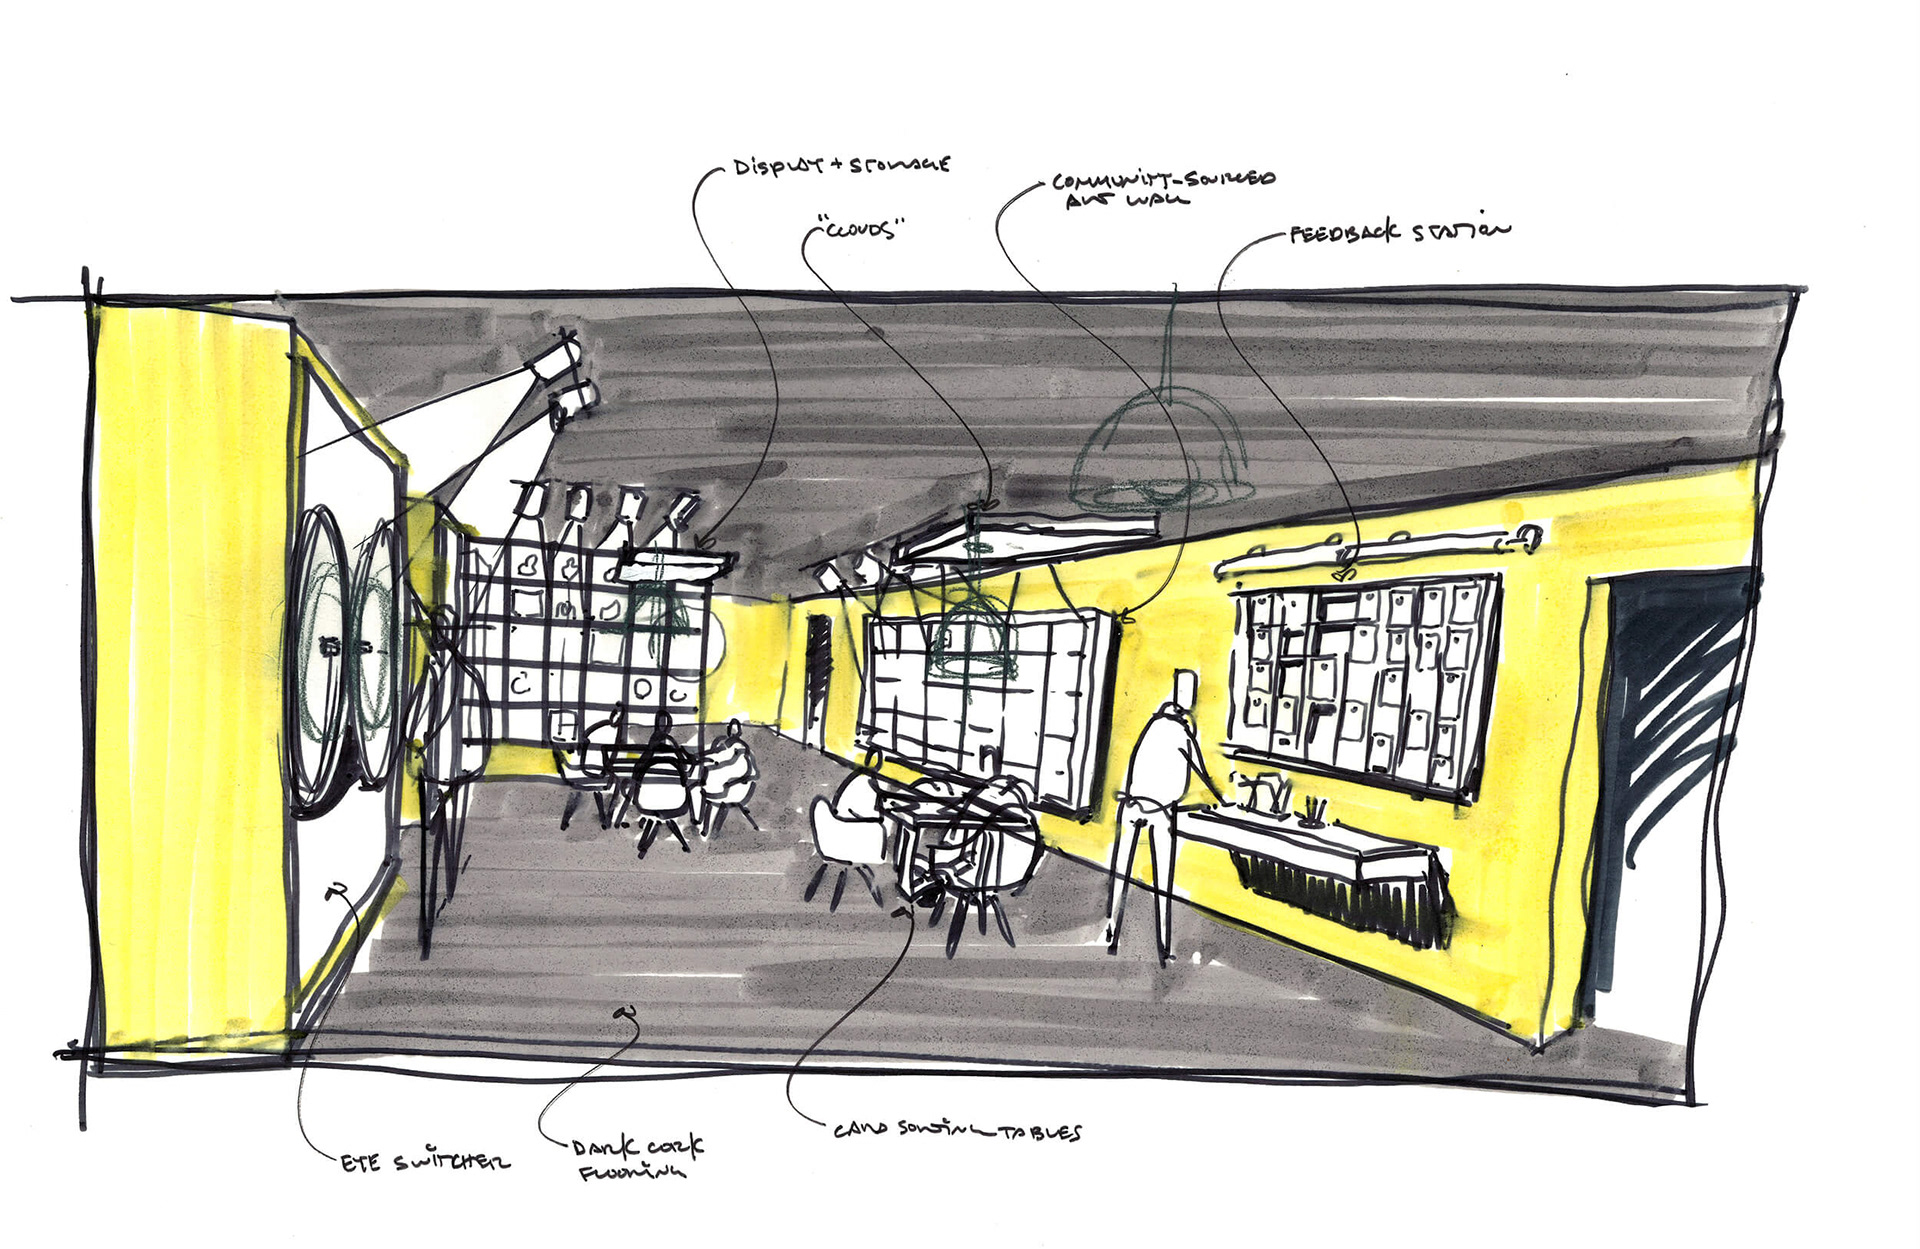 DISPLAY + STORAGE
"CLOUDS"
COMMUNITY-SOURCED
ART WALL
FEEDBACK STATION
EYE SWITCHER
DARK CORK
FLOORING
CARD SORTING TABLES